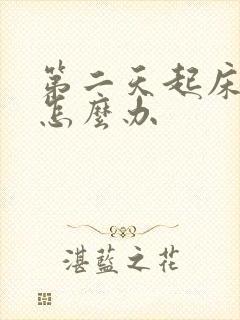 第二天起床
怎麼办
湛藍之花